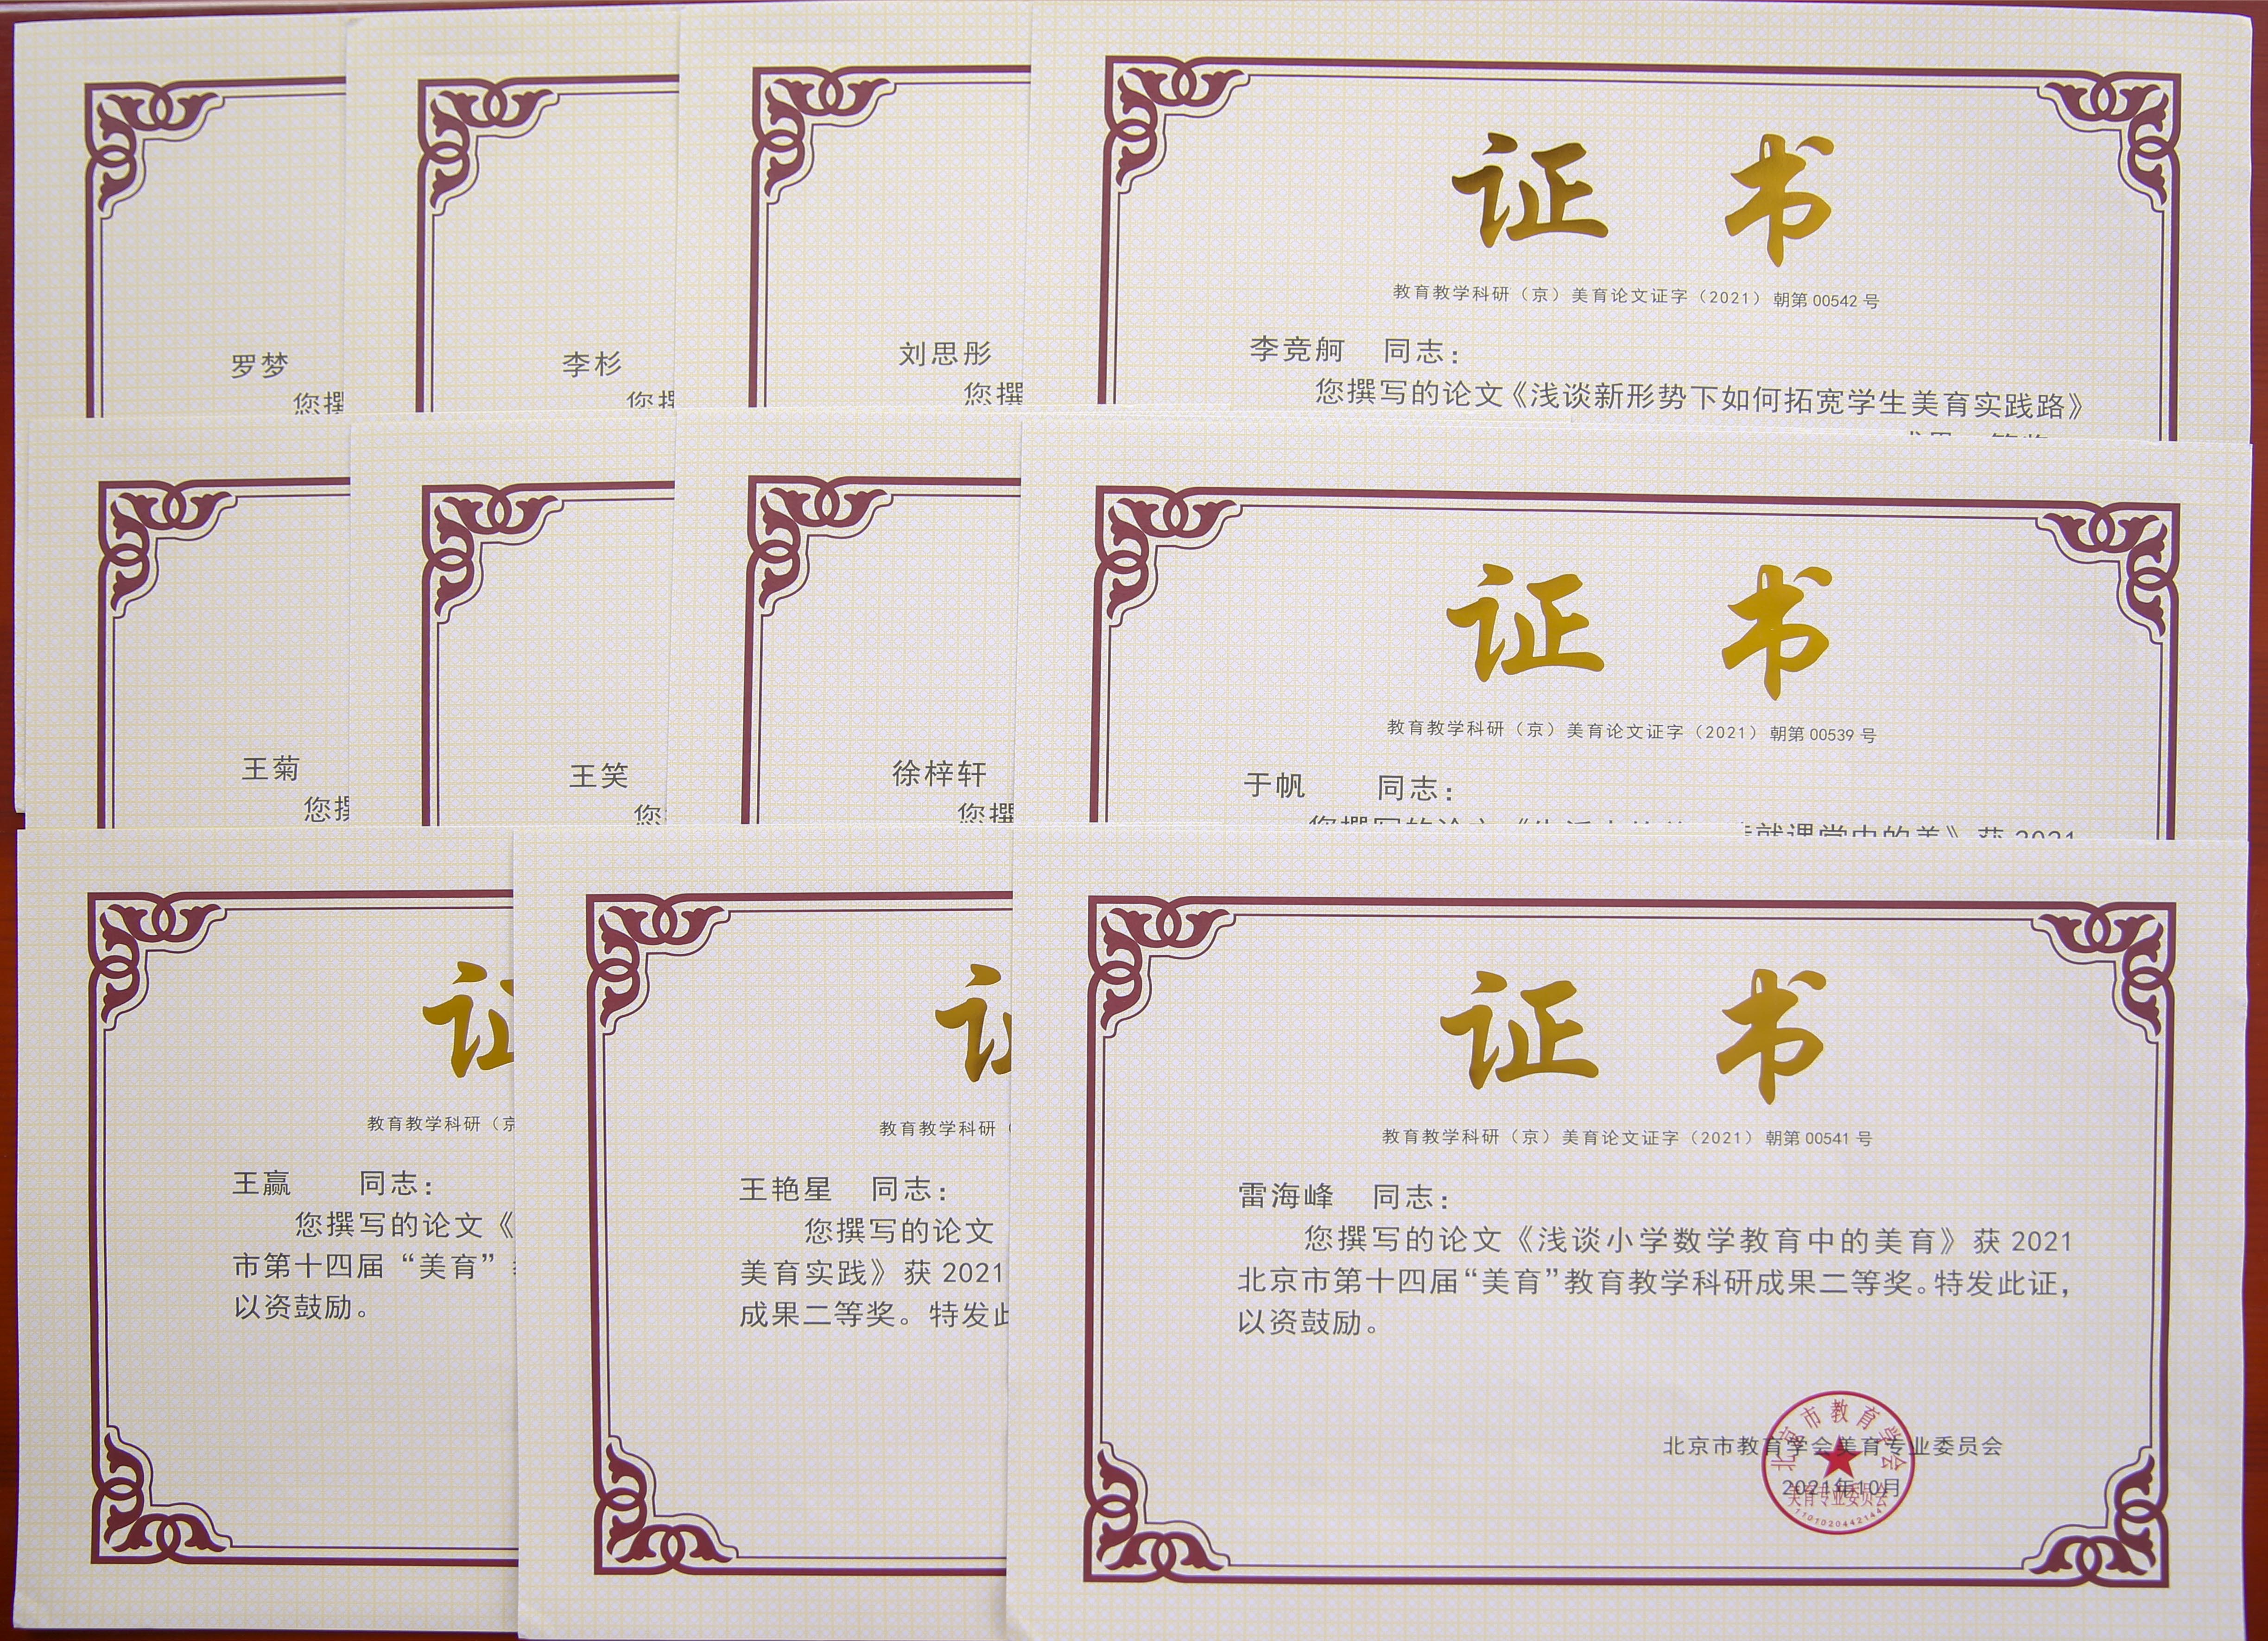 罗梦
您撰
李杉
您撰
刘思彤
您撰
证书
教育教学科研（京）美育论文证字（2021）朝第 00542 号
李竞舸 同志：
您撰写的论文《浅谈新形势下如何拓宽学生美育实践路》
王菊
您撰
王笑
您
徐梓轩
您撰
证书
教育教学科研（京）美育论文证字（2021）朝第 00539 号
于帆 同志：
就课堂中的美》获 2021
证
教育教学科研（京
王赢 同志：
您撰写的论文《
市第十四届“美育”
以资鼓励。
证
教育教学科研（
王艳星 同志：
您撰写的论文
美育实践》获 2021
成果二等奖。特发此
证书
教育教学科研（京）美育论文证字（2021）朝第 00541 号
雷海峰 同志：
您撰写的论文《浅谈小学数学教育中的美育》获 2021
北京市第十四届“美育”教育教学科研成果二等奖。特发此证，
以资鼓励。
北京市教育学会美育专业委员会
2021年10月
北京市教育学会
美育专业委员会